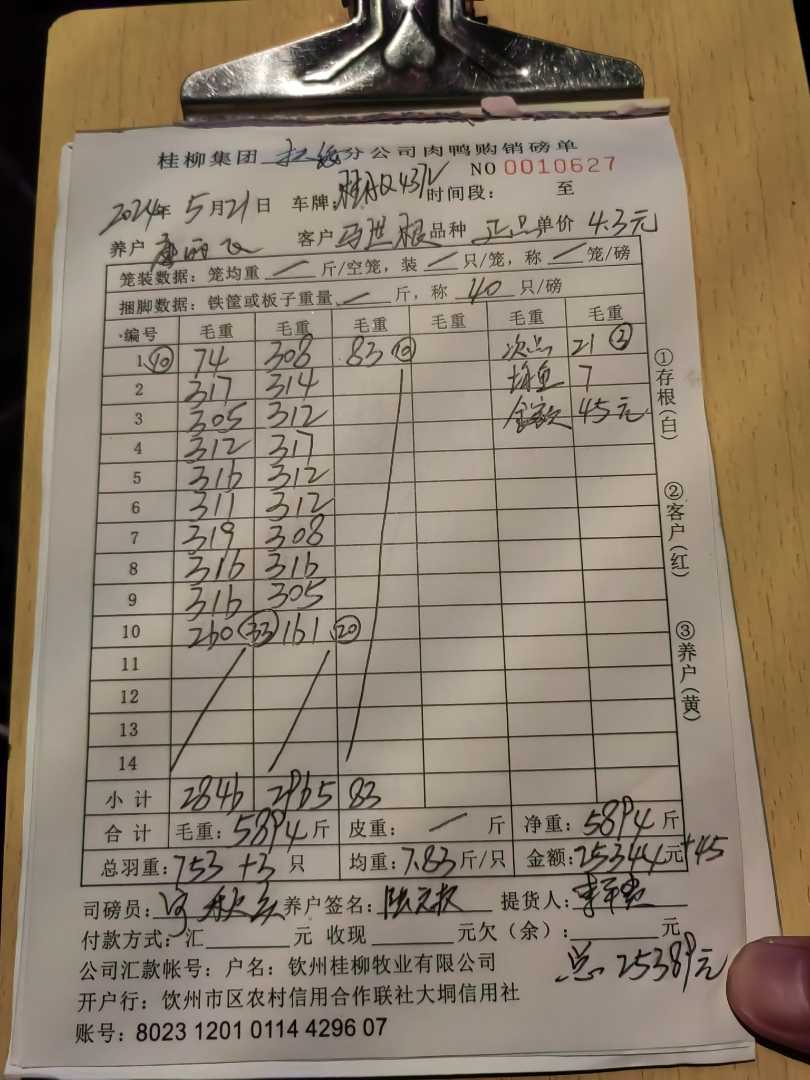 桂柳集团 分公司肉鸭购销磅单
NO 0010627
2024年 5月21日 车牌: 时间段: 至
养户 客户 马世根 品种 正品 单价 4.3元
笼装数据: 笼均重 / 斤/空笼, 装 / 只/笼, 称 / 笼/磅
捆脚数据: 铁筐或板子重量 / 斤, 称 40 只/磅
编号 毛重 毛重 毛重 毛重 毛重 毛重
1 ⑩ 74 308 83 ⑩ 次品 21 ③
2 317 314 7
3 305 312 金额 45元
4 312 317
5 316 312
6 311 312
7 319 308
8 316 316
9 316 305
10 260 ㉝ 161 ⑳
11
12
13
14
小计 2846 2965 83
合计 毛重: 5894斤 皮重: / 斤 净重: 5894斤
总羽重: 753+3 只 均重: 7.83斤/只 金额: 25344元+45
司磅员: 养户签名: 提货人:
付款方式: 汇 元 收现 元欠(余): 元
公司汇款帐号: 户名: 钦州桂柳牧业有限公司
总 25389元
开户行: 钦州市区农村信用合作联社大垌信用社
账号: 8023 1201 0114 4296 07
①存根(白)
②客户(红)
③养户(黄)